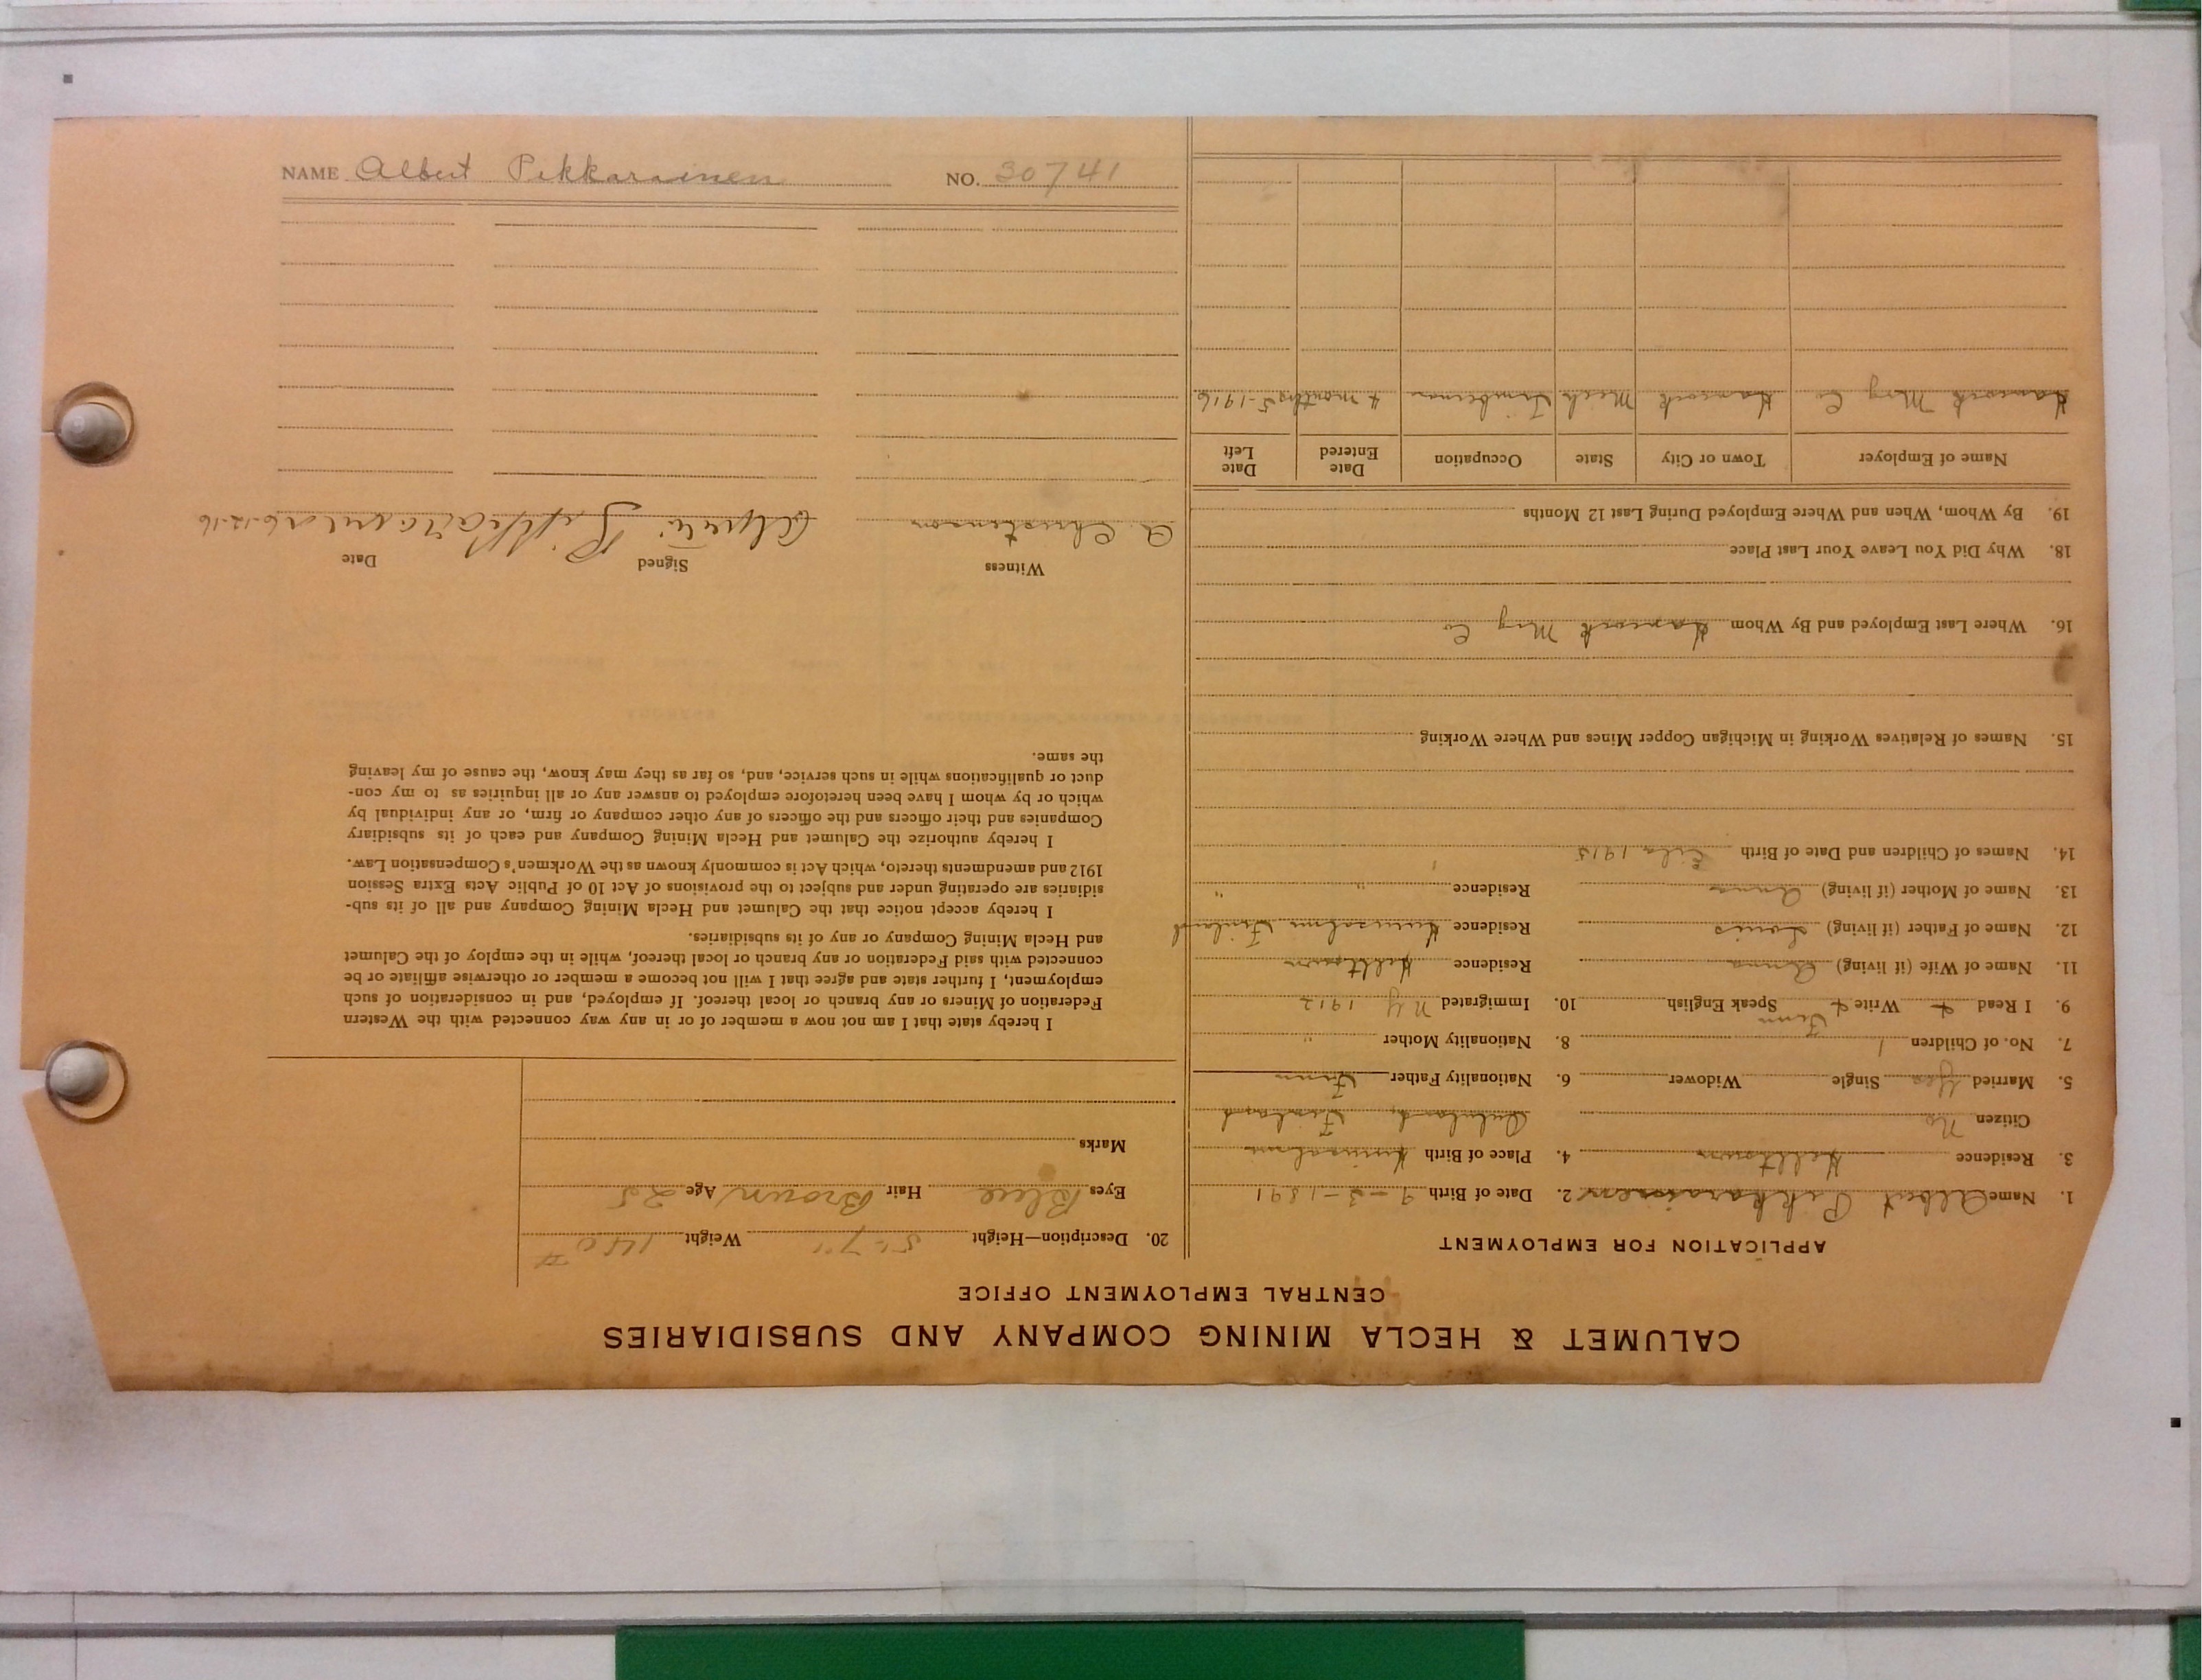 NAME Albert Pekkarainen NO. 30741
CALUMET & HECLA MINING COMPANY AND SUBSIDIARIES
CENTRAL EMPLOYMENT OFFICE
APPLICATION FOR EMPLOYMENT
1. Name Albert Pekkarainen 2. Date of Birth 9-3-1891
3. Residence Helltown 4. Place of Birth
Citizen No Finland
5. Married Yes Single Widower 6. Nationality Father Finn
7. No. of Children 1 8. Nationality Mother "
9. I Read Write Speak English Finn 10. Immigrated N.Y. 1912
11. Name of Wife (if living) Anna Residence Helltown
12. Name of Father (if living) Louis Residence Finland
13. Name of Mother (if living) Anna Residence " "
14. Names of Children and Date of Birth 1915
15. Names of Relatives Working in Michigan Copper Mines and Where Working
16. Where Last Employed and By Whom Hancock Mng Co
18. Why Did You Leave Your Last Place
19. By Whom, When and Where Employed During Last 12 Months
Name of Employer Town or City State Occupation Date Entered Date Left
Hancock Mng Co Hancock Mich Timberman 4 months 5-1916
20. Description—Height 5'-7" Weight 150 #
Eyes Blue Hair Brown Age 25
Marks
I hereby state that I am not now a member of or in any way connected with the Western
Federation of Miners or any branch or local thereof. If employed, and in consideration of such
employment, I further state and agree that I will not become a member or otherwise affiliate or be
connected with said Federation or any branch or local thereof, while in the employ of the Calumet
and Hecla Mining Company or any of its subsidiaries.
I hereby accept notice that the Calumet and Hecla Mining Company and all of its sub-
sidiaries are operating under and subject to the provisions of Act 10 of Public Acts Extra Session
1912 and amendments thereto, which Act is commonly known as the Workmen's Compensation Law.
I hereby authorize the Calumet and Hecla Mining Company and each of its subsidiary
Companies and their officers and the officers of any other company or firm, or any individual by
which or by whom I have been heretofore employed to answer any or all inquiries as to my con-
duct or qualifications while in such service, and, so far as they may know, the cause of my leaving
the same.
Witness Signed Date
A Christenson 6-12-16